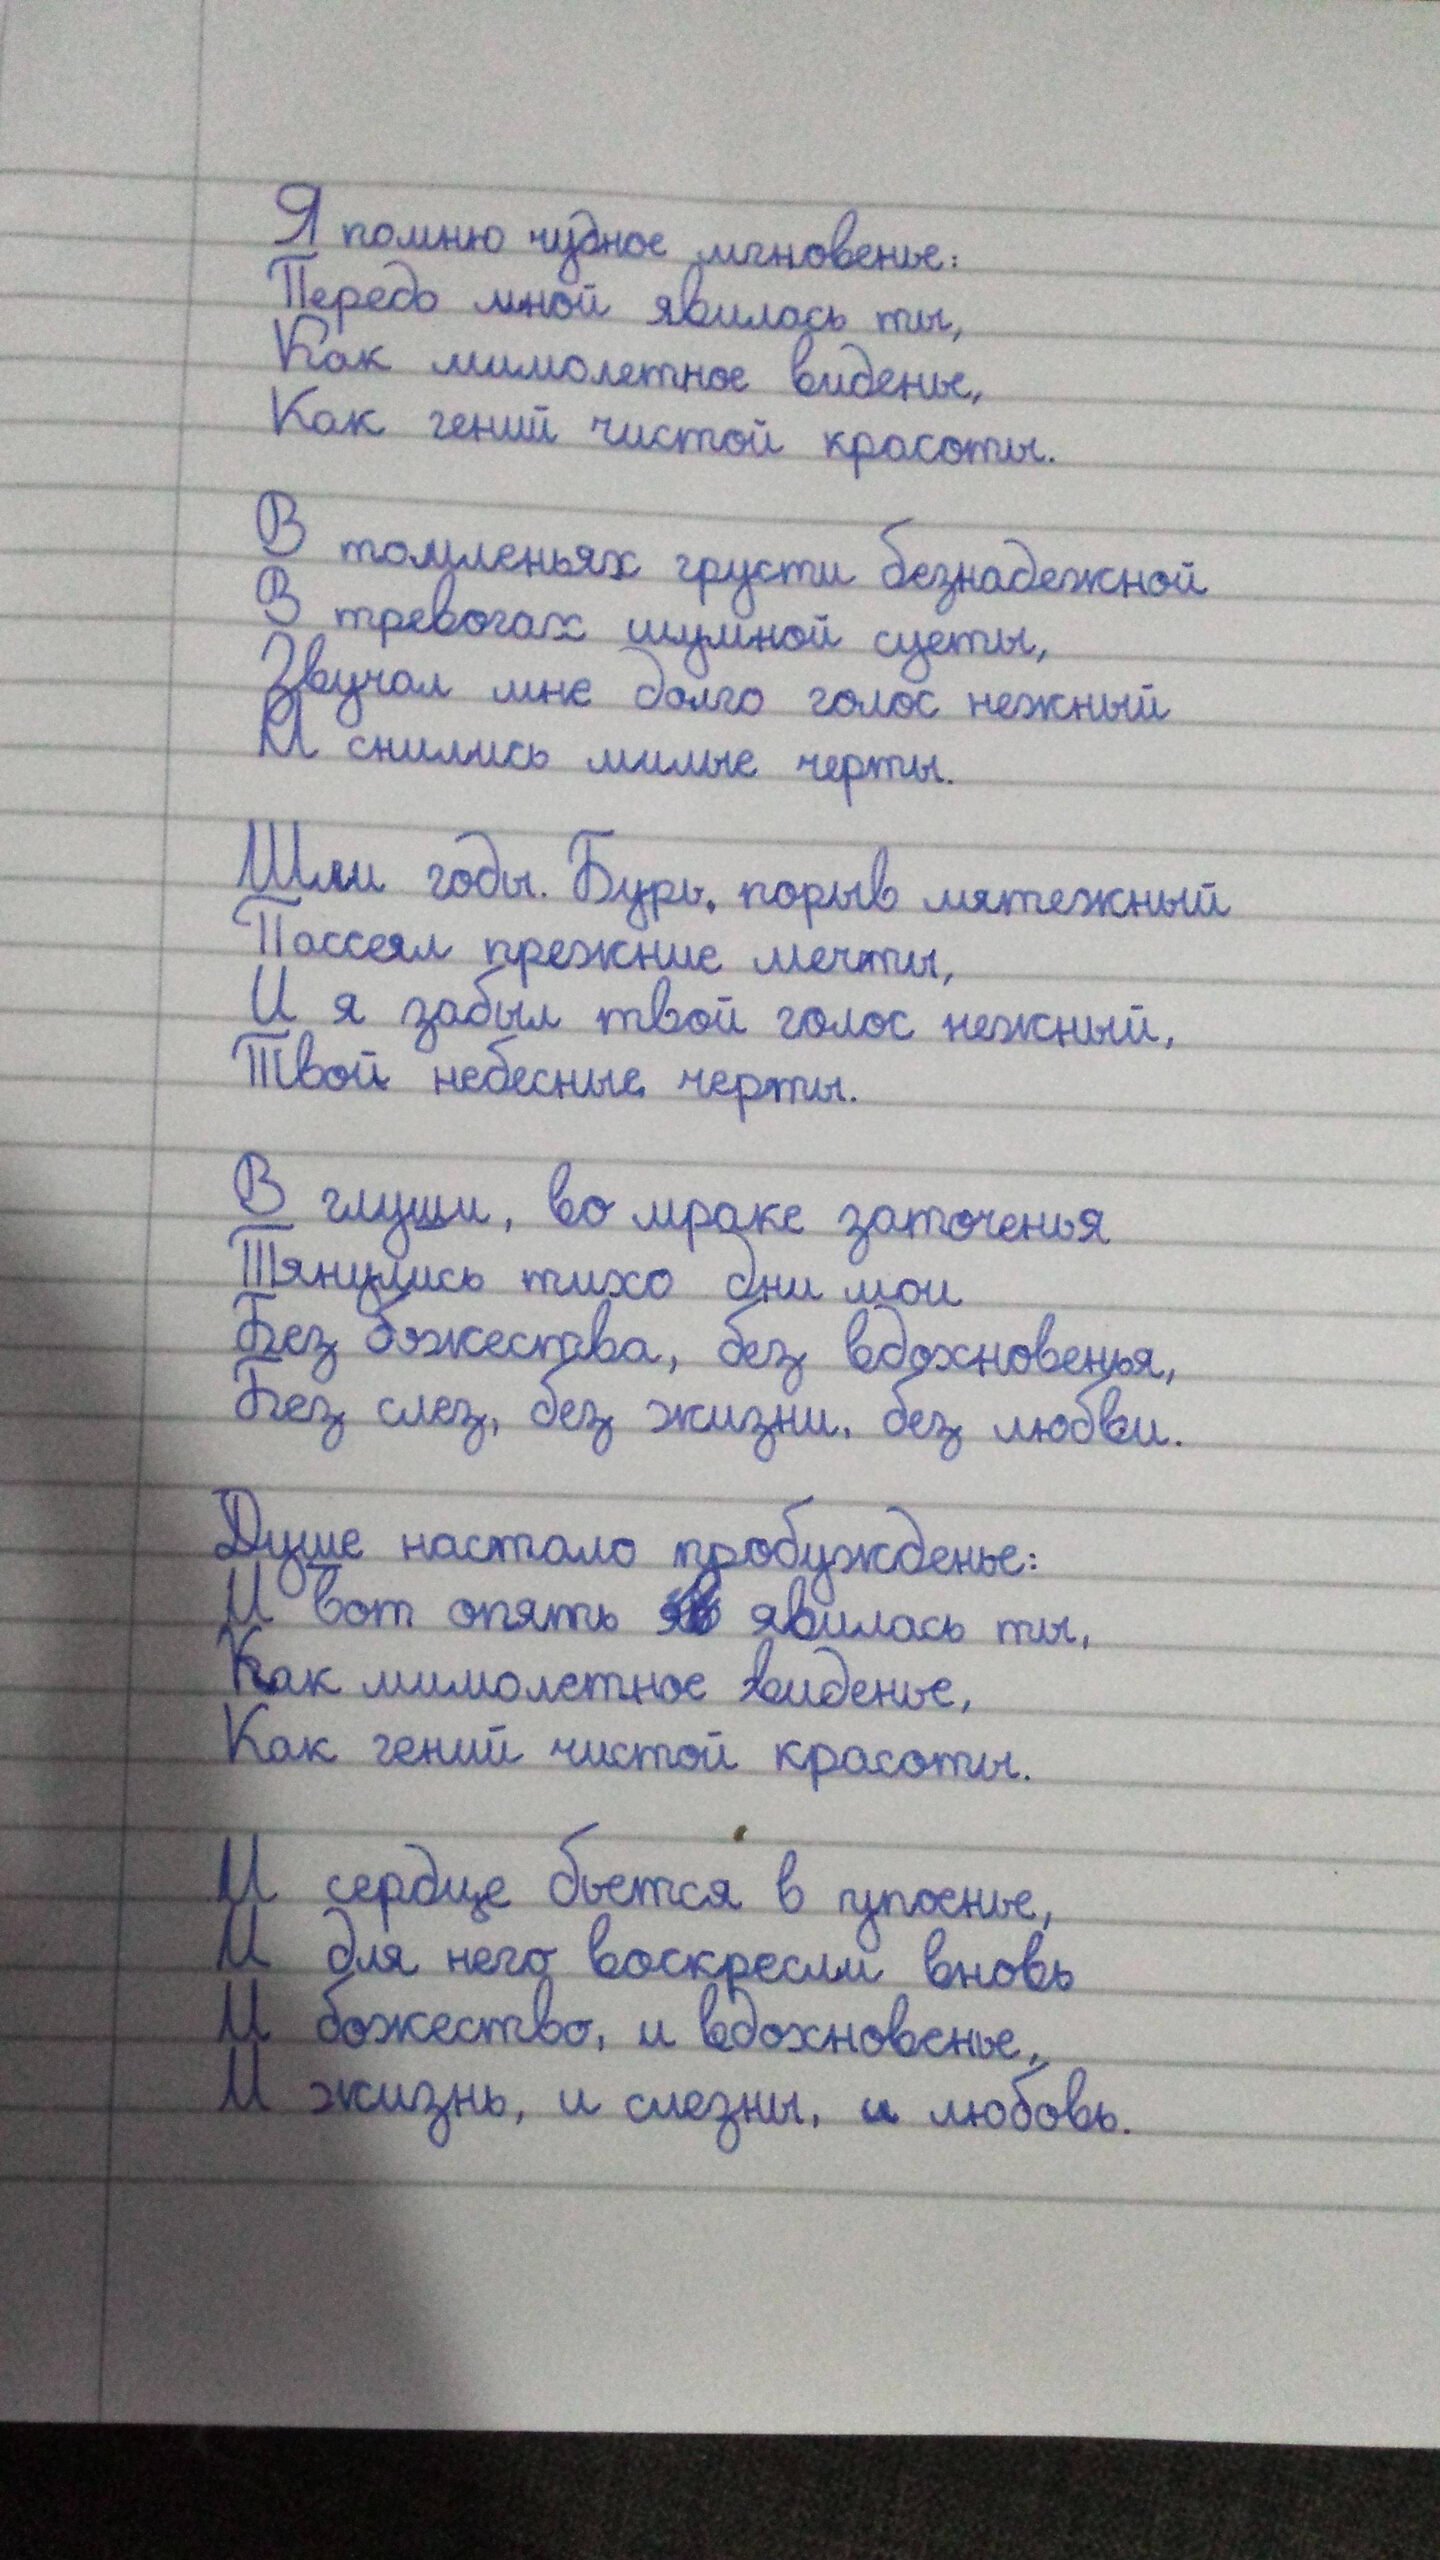 Я помню чудное мгновенье:
Передо мной явилась ты,
Как мимолетное виденье,
Как гений чистой красоты.
В томленьях грусти безнадежной
В тревогах шумной суеты,
Звучал мне долго голос нежный
И снились милые черты.
Шли годы. Бурь, порыв мятежный
Пассеял прежние мечты,
И я забыл твой голос нежный,
Твой небесные черты.
В глуши, во мраке заточенья
Тянулись тихо дни мои
Без божества, без вдохновенья,
Без слез, без жизни, без любви.
Душе настало пробужденье:
И вот опять явилась ты,
Как мимолетное виденье,
Как гений чистой красоты.
И сердце бьется в упоенье,
И для него воскресли вновь
И божество, и вдохновенье,
И жизнь, и слезны, и любовь.